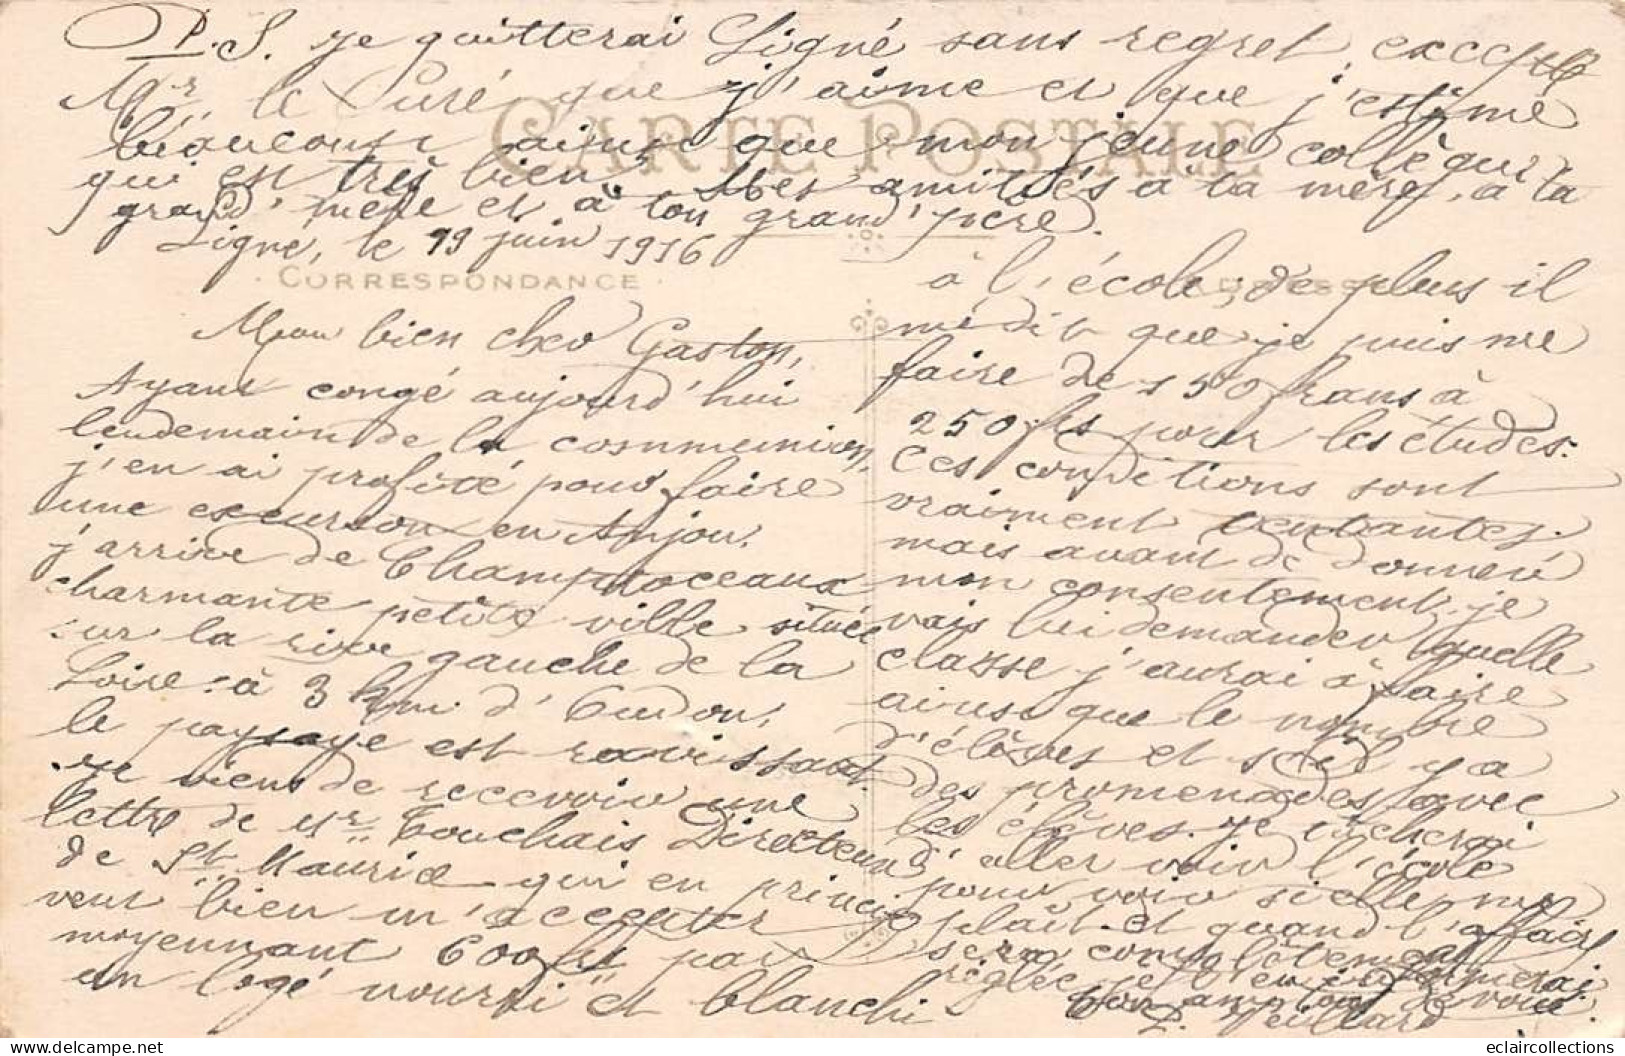 P.S. je quitterai Ligné sans regret, excepté
Mgr le Curé que j'aime et que j'estime
CARTE POSTALE
beaucoup ainsi que mon jeune collègue
qui est très bien. Mes amitiés à ta mère, à ta
grand'mère et à ton grand'père.
Ligné, le 19 juin 1916
CORRESPONDANCE
Mon bien cher Gaston,
Ayant congé aujourd'hui
lendemain de la communion,
j'en ai profité pour faire
une excurson en Anjou.
j'arrive de Champtoceaux
charmante petite ville située
sur la rive gauche de la
Loire à 3 km d'Oudon,
le paysage est ravissant.
je viens de recevoir une
lettre de Mr Touchais Directeur
de St Maurice qui en principe
veut bien m'accepter
moyennant 600 frs par
an logé nourri et blanchi
à l'école; de plus il
me dit que je puis me
faire de 150 frans à
250 frs pour les études.
Ces conditions sont
vraiment tentantes.
mais avant de donner
mon consentement je
vais lui demander quelle
classe j'aurai à faire
ainsi que le nombre
d'élèves et s'il y a
des promenades avec
les élèves. je tâcherai
d'aller voir l'école
pour voir si elle me
plaît. et quand l'affaire
sera complètement
réglée je t'en informerai.
Ton ami tout de vous
L. Veillard
eclaircollections